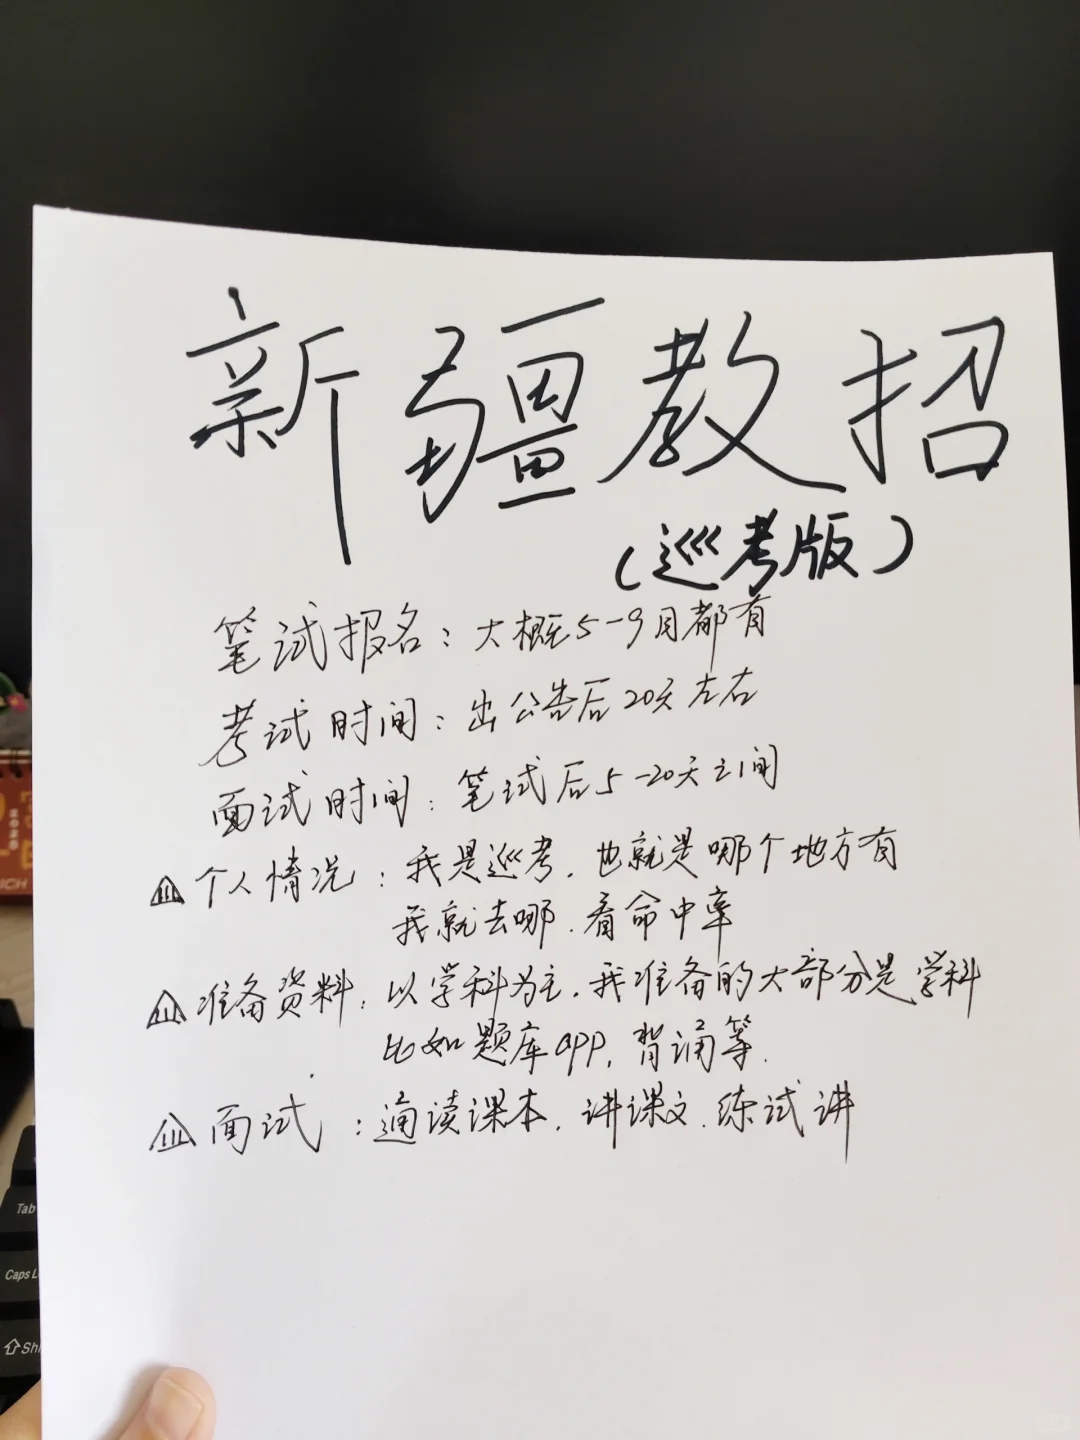 新疆教招
（巡考版）
笔试报名：大概5-9月都有
考试时间：出公告后20天左右
面试时间：笔试后5-20天之间
个人情况：我是巡考，也就是哪个地方有
我就去哪，看命中率
准备资料：以学科为主，我准备的大部分是学科
比如题库app，背诵等.
面试：通读课本，讲课文，练试讲
Tab
Caps L
Shi
2025
ICH